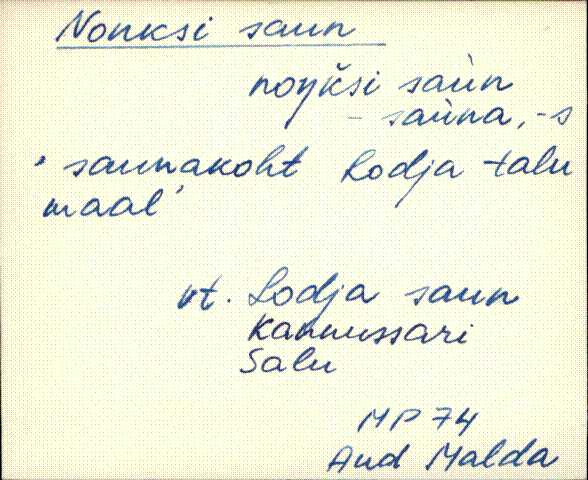 Nonksi saun
noŋksi saùn
- saùna, -s
'saunakoht Lodja talu
maal'
vt. Lodja saun
Kannussari
Salu
MP 74
And Malda